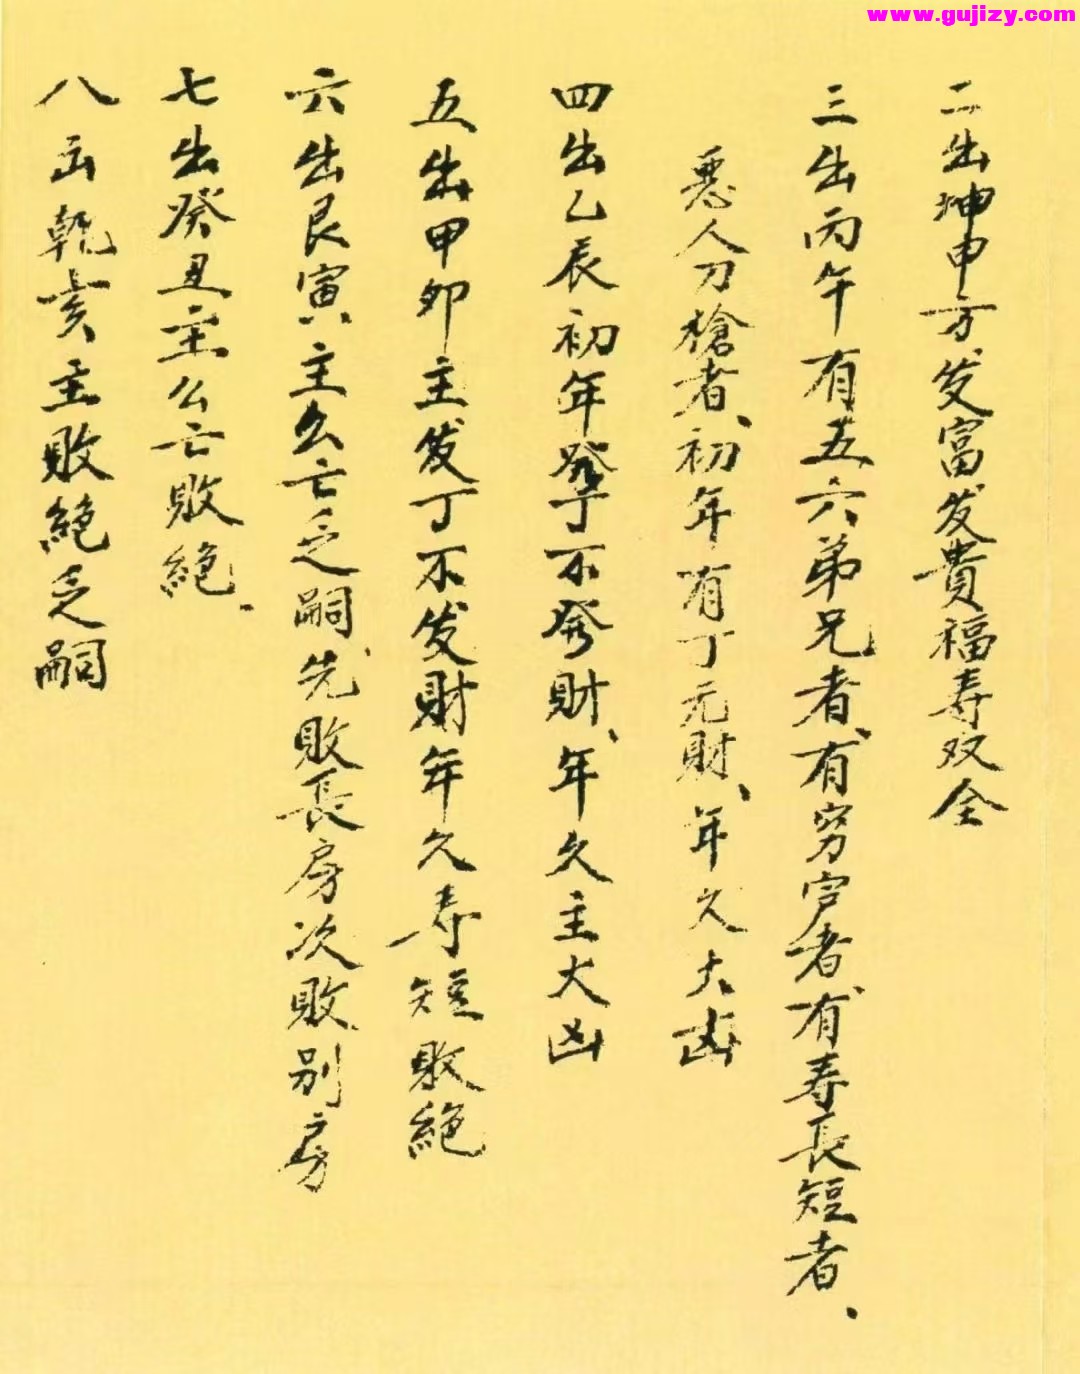 www.gujizy.com
二出坤申方发富发貴福寿双全
三出丙午有五六弟兄者、有穷者有寿長短者、
恶人刀槍者、初年有丁元財、年久大凶
四出乙辰初年發丁不發財、年久主大凶
五出甲卯主发丁不发財年久寿短敗絶
六出艮寅主么亡乏嗣、先敗長房次敗别房
七出癸丑主么亡敗絶、
八出乾亥主敗絶乏嗣